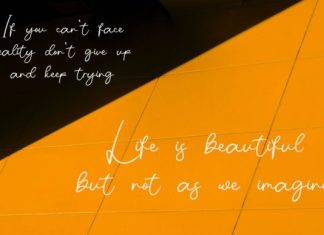 If you can't face
eality don't give up
and keep trying
Life is beautiful
but not as we imagin